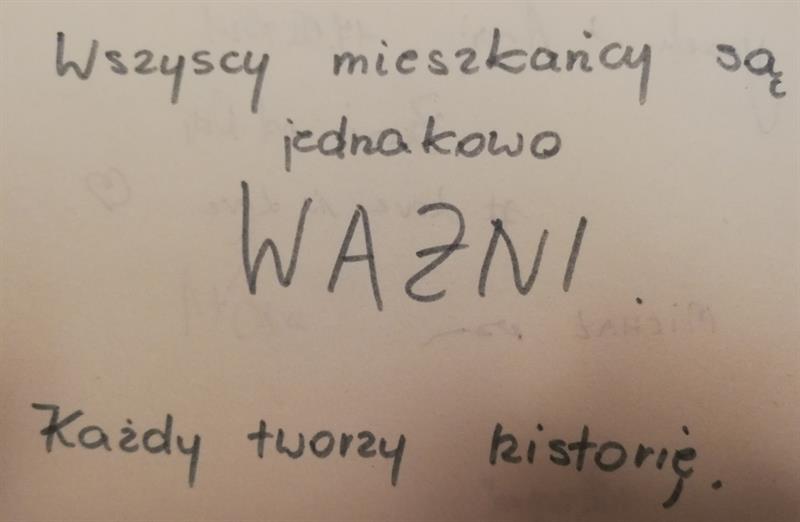 Wszyscy mieszkańcy są
jednakowo
WAŻNI.
Każdy tworzy historię.